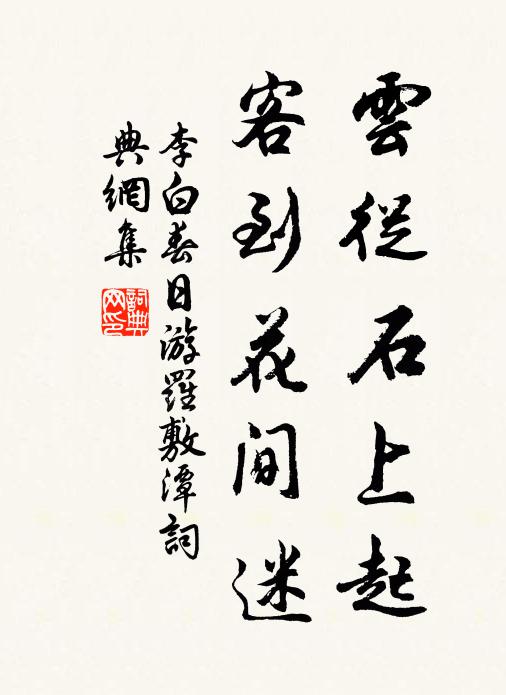 雲從石上起
客到花間迷
李白春日游羅敷潭詞
典網集
詞典
网印